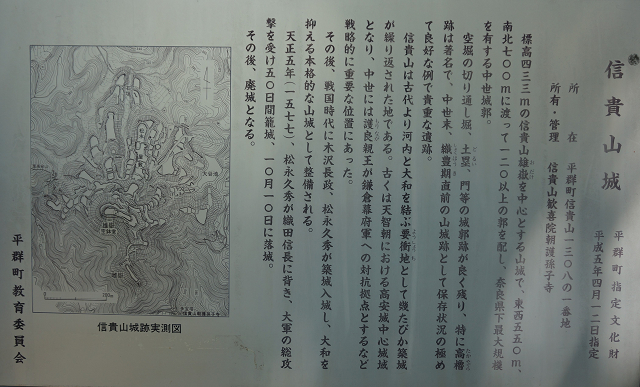 信貴山城
平群町指定文化財
平成五年四月一二日指定
所在 平群町信貴山一三〇八の一番地
所有・管理 信貴山歓喜院朝護孫子寺
標高四三三mの信貴山雄嶽を中心とする山城で、東西五五〇m、
南北七〇〇mに渡って一二〇以上の郭を配し、奈良県下最大規模
を有する中世城郭。
空堀の切り通し堀、土塁、門等の城郭跡が良く残り、特に高櫓
跡は著名で、中世末、織豊期直前の山城跡として保存状況の極め
て良好な例で貴重な遺跡。
信貴山は古代より河内と大和を結ぶ要衝地として幾たびか築城
が繰り返された地である。古くは天智朝における高安城中心城域
となり、中世には護良親王が鎌倉幕府軍への対抗拠点とするなど
戦略的に重要な位置にあった。
その後、戦国時代に木沢長政、松永久秀が築城入城し、大和を
抑える本格的な山城として整備される。
天正五年(一五七七)、松永久秀が織田信長に背き、大軍の総攻
撃を受け五〇日間籠城、一〇月一〇日に落城。
その後、廃城となる。
信貴山城跡実測図
平群町教育委員会